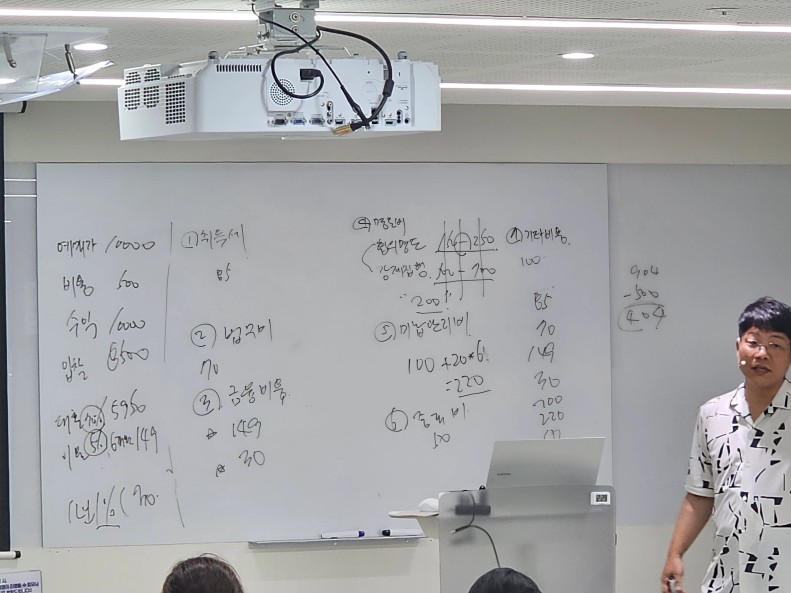 예정가 10000
비용 500
수익 1000
입찰 8500
대출 70% 5950
이자 5% 6개월 149
1년 1% ( 30
① 취득세
85
② 법무비
70
③ 금융비용
149
30
④ 명도비
합의명도 150 - 250
강제집행 - 700
200
⑤ 미납관리비
100 + 20 * 6
= 220
⑥ 중개비
50
⑦ 기타비용
100
85
70
149
30
200
220
904
- 500
404